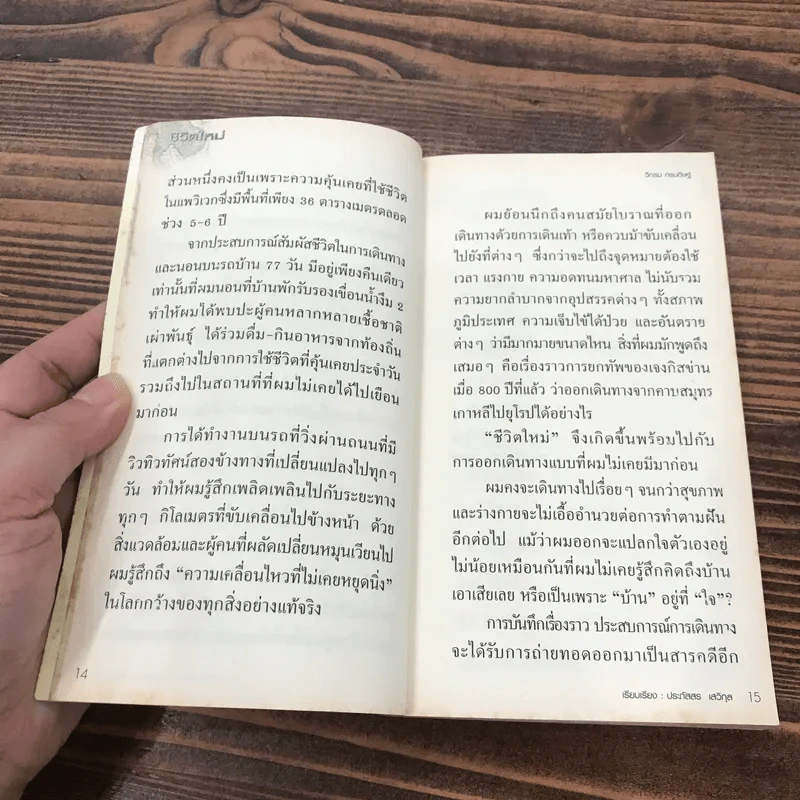 ชีวิตใหม่
ส่วนหนึ่งคงเป็นเพราะความคุ้นเคยที่ใช้ชีวิต
ในแพวิเวกซึ่งมีพื้นที่เพียง 36 ตารางเมตรตลอด
ช่วง 5-6 ปี
จากประสบการณ์สัมผัสชีวิตในการเดินทาง
และนอนบนรถบ้าน 77 วัน มีอยู่เพียงคืนเดียว
เท่านั้นที่ผมนอนที่บ้านพักรับรองเขื่อนน้ำงึม 2
ทำให้ผมได้พบปะผู้คนหลากหลายเชื้อชาติ
เผ่าพันธุ์ ได้ร่วมดื่ม-กินอาหารจากท้องถิ่น
ที่แตกต่างไปจากการใช้ชีวิตที่คุ้นเคยประจำวัน
รวมถึงไปในสถานที่ที่ผมไม่เคยได้ไปเยือน
มาก่อน
การได้ทำงานบนรถที่วิ่งผ่านถนนที่มี
วิวทิวทัศน์สองข้างทางที่เปลี่ยนแปลงไปทุกๆ
วัน ทำให้ผมรู้สึกเพลิดเพลินไปกับระยะทาง
ทุกๆ กิโลเมตรที่ขับเคลื่อนไปข้างหน้า ด้วย
สิ่งแวดล้อมและผู้คนที่ผลัดเปลี่ยนหมุนเวียนไป
ผมรู้สึกถึง “ความเคลื่อนไหวที่ไม่เคยหยุดนิ่ง”
ในโลกกว้างของทุกสิ่งอย่างแท้จริง
14
วิกรม กรมดิษฐ์
ผมย้อนนึกถึงคนสมัยโบราณที่ออก
เดินทางด้วยการเดินเท้า หรือควบม้าขับเคลื่อน
ไปยังที่ต่างๆ ซึ่งกว่าจะไปถึงจุดหมายต้องใช้
เวลา แรงกาย ความอดทนมหาศาล ไม่นับรวม
ความยากลำบากจากอุปสรรคต่างๆ ทั้งสภาพ
ภูมิประเทศ ความเจ็บไข้ได้ป่วย และอันตราย
ต่างๆ ว่ามีมากมายขนาดไหน สิ่งที่ผมมักพูดถึง
เสมอๆ คือเรื่องราวการยกทัพของเจงกิสข่าน
เมื่อ 800 ปีที่แล้ว ว่าออกเดินทางจากคาบสมุทร
เกาหลีไปยุโรปได้อย่างไร
“ชีวิตใหม่” จึงเกิดขึ้นพร้อมไปกับ
การออกเดินทางแบบที่ผมไม่เคยมีมาก่อน
ผมคงจะเดินทางไปเรื่อยๆ จนกว่าสุขภาพ
และร่างกายจะไม่เอื้ออำนวยต่อการทำตามฝัน
อีกต่อไป แม้ว่าผมออกจะแปลกใจตัวเองอยู่
ไม่น้อยเหมือนกันที่ผมไม่เคยรู้สึกคิดถึงบ้าน
เอาเสียเลย หรือเป็นเพราะ “บ้าน” อยู่ที่ “ใจ”?
การบันทึกเรื่องราว ประสบการณ์การเดินทาง
จะได้รับการถ่ายทอดออกมาเป็นสารคดีอีก
เรียบเรียง : ประภัสสร เสวิกุล 15